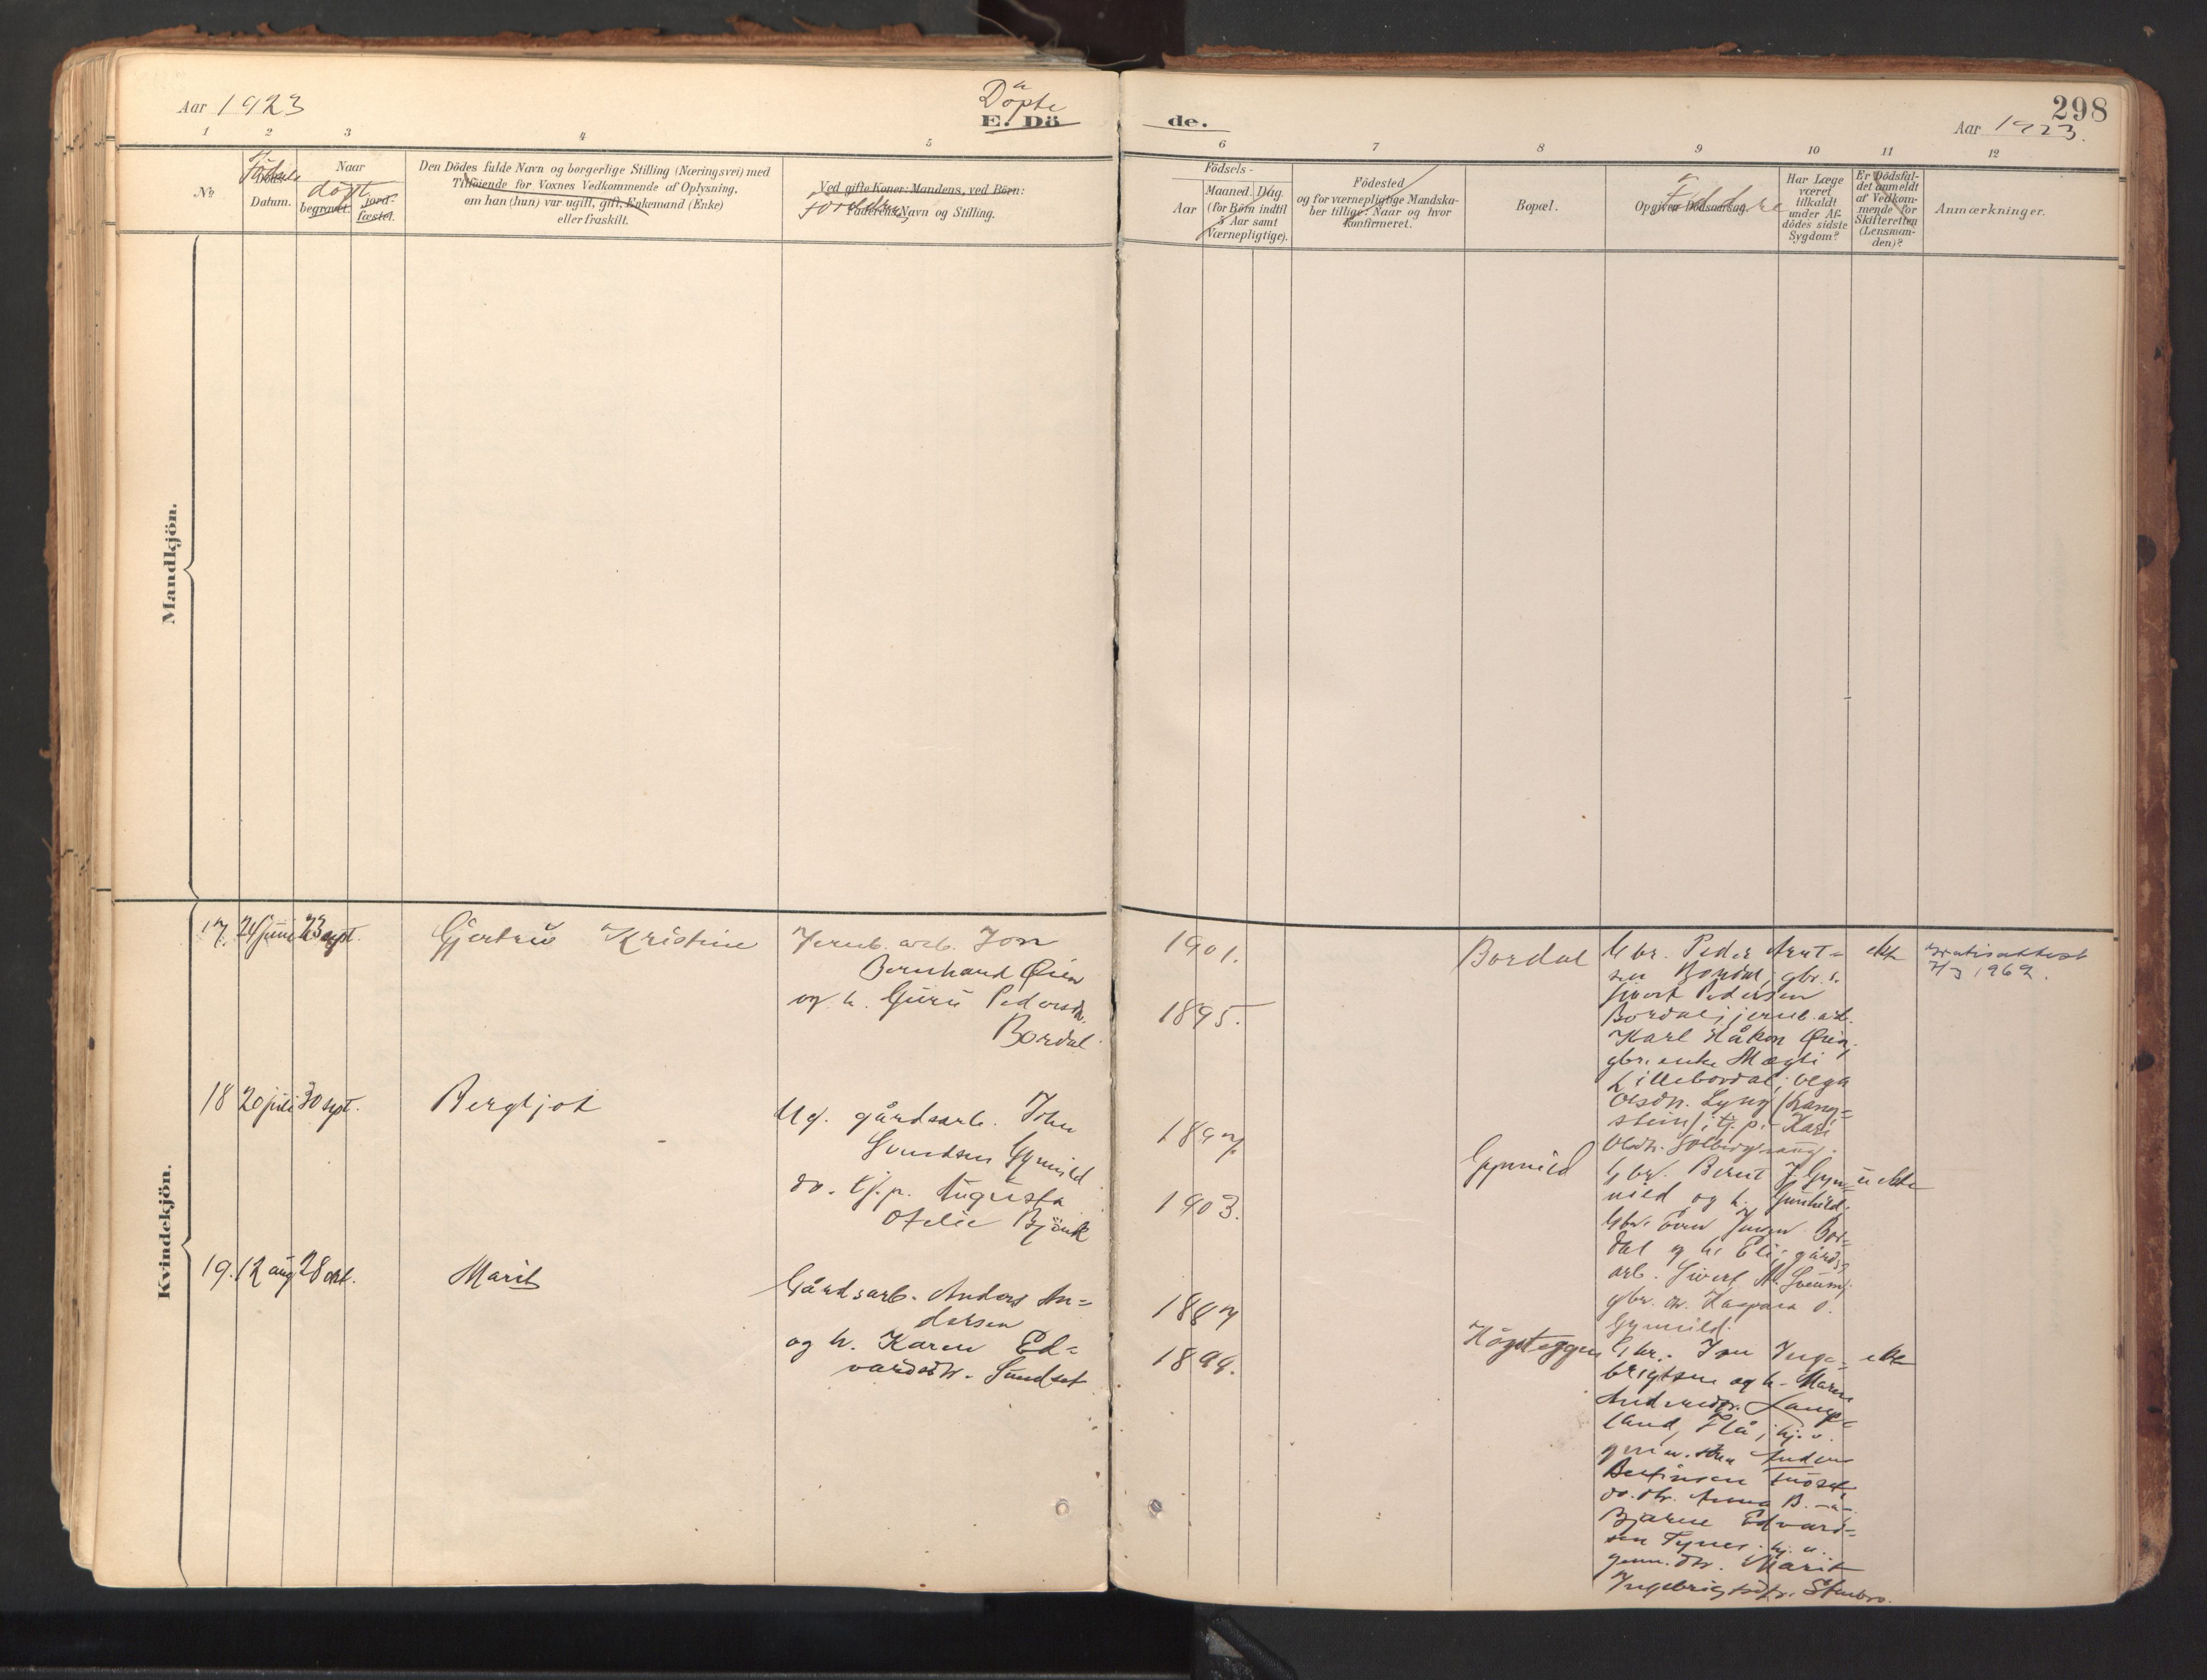 Aar 1923
Döpte
E. Dö
de.
298
Aar 1923.
1 2 3 4 5 6 7 8 9 10 11 12
No.
Födsels
Döds-
Datum.
Naar
döpt
begravet.
jord-
fæstet.
Den Dödes fulde Navn og borgerlige Stilling (Næringsvei) med
Tilföiende for Voxnes Vedkommende af Oplysning,
om han (hun) var ugift, gift, Enkemand (Enke)
eller fraskilt.
Ved gifte Koner: Mandens, ved Börn:
Forældres
Faderens Navn og Stilling.
Födsels-
Aar
Maaned. Dag.
(for Börn indtil
5 Aar samt
Værnepligtige).
Födested
og for værnepligtige Mandska-
ber tillige: Naar og hvor
konfirmeret.
Bopæl.
Faddere
Opgiven Dödsaarsag.
Har Læge
været
tilkaldt
under Af-
dödes sidste
Sygdom?
Er Dödsfal-
det anmeldt
af Vedkom-
mende for
Skifteretten
(Lensman-
den)?
Anmærkninger.
Mandkjön.
Kvindekjön.
17. 24 juni 23 sept.
Gjertrud Kristine
Jernb. arb. Jon
Bernhard Øien
og h. Guru Pedersdr.
Bordal
1901.
1895.
Bordal
Gbr. Peder Arnt-
sen Bordal; gbr. s.
Sivert Pedersen
Bordal; jernb. arb.
Karl Håkon Øien;
gbr. enke Magli
Lillebordal; Olga
Olsdr. Lyng (Lang-
stein); tj. p. Kari
Olsdr. Solberg
ekte
Gratisattest
7/3 1962.
18 20 juli 30 sept.
Bergljot
Ug. gårdsarb. John
Svendsen Gynnild
do. tj. p. Augusta
Otelie Bjönk
1897
1903.
Gynnild
Gbr. Bernt J. Gyn-
nild og h. Gunhild;
Gbr. Even Jensen Bor-
dal og h. Eli; gårds-
arb. Sivert A.
gbr. dr. Kaspara O.
Gynnild.
uekte
19. 12 aug 28 okt.
Marit
Gårdsarb. Anders An-
dersen
og h. Karen Ed-
vardsdtr. Sundset
1887
1899.
Högeteggen
Gbr. Jon Inge-
brigtsen og h. Maren
Andersdr. Lange-
land, Flå; hj. v.
gm. sön Anders
do. dtr. Anna B. -"-
Bjarne Edvard-
sen Tynes. hj. v.
gmm. dtr. Marit
Ingebrigtsdtr. Stenbro.
ekte